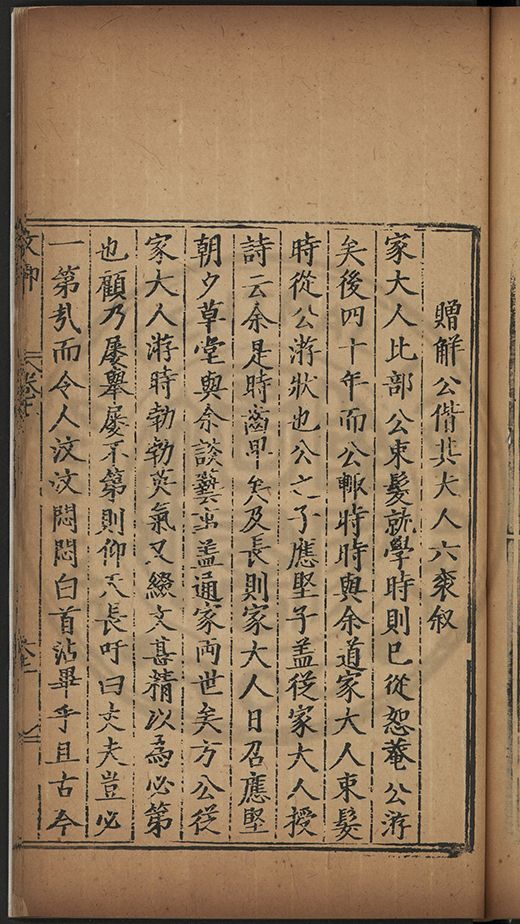 贈解公偕其大人六袠叙
家大人比部公束髪就學時則已從恕菴公游
矣後四十年而公輙時時與余道家大人束髪
時從公游狀也公之子應堅子盖從家大人授
詩云余是時齒甲矣及長則家大人日召應堅
朝夕草堂與余談藝盖通家両世矣方公從
家大人游時勃勃英氣又綴文甚精以為必第
也顧乃屡舉屡不第則仰天長吁曰丈夫豈必
一第哉而令人汶汶悶悶白首沾畢乎且古今